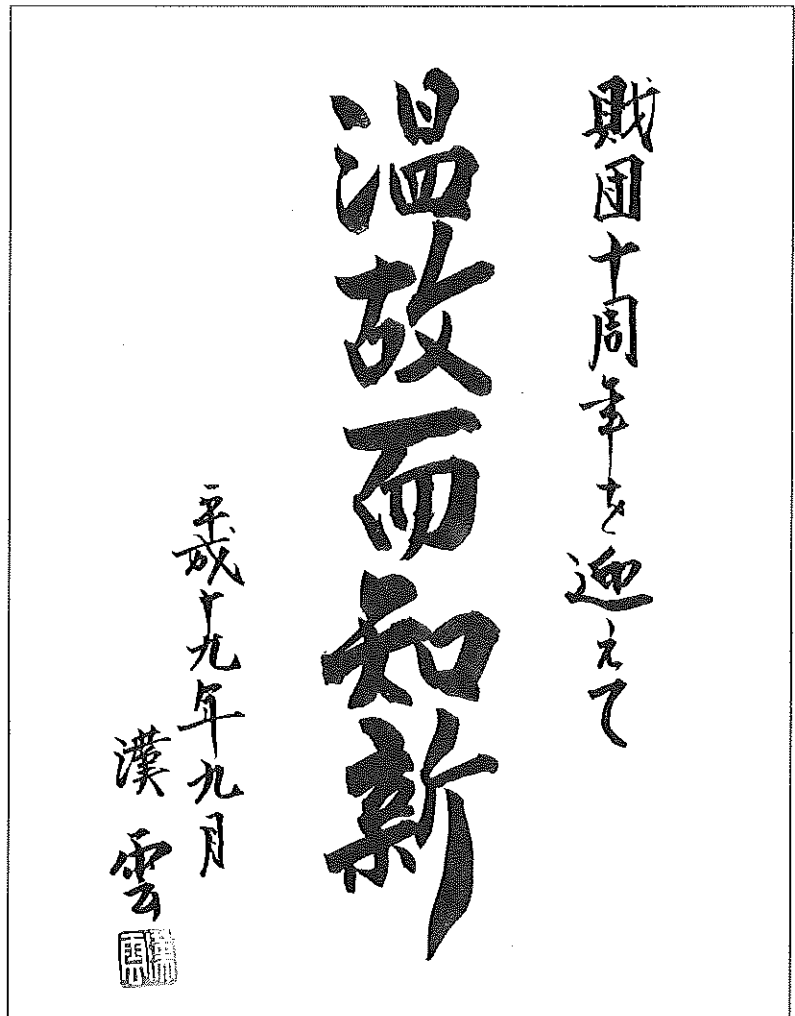 財団十周年を迎えて
温故而知新
平成十九年九月
漢雲
漢雲